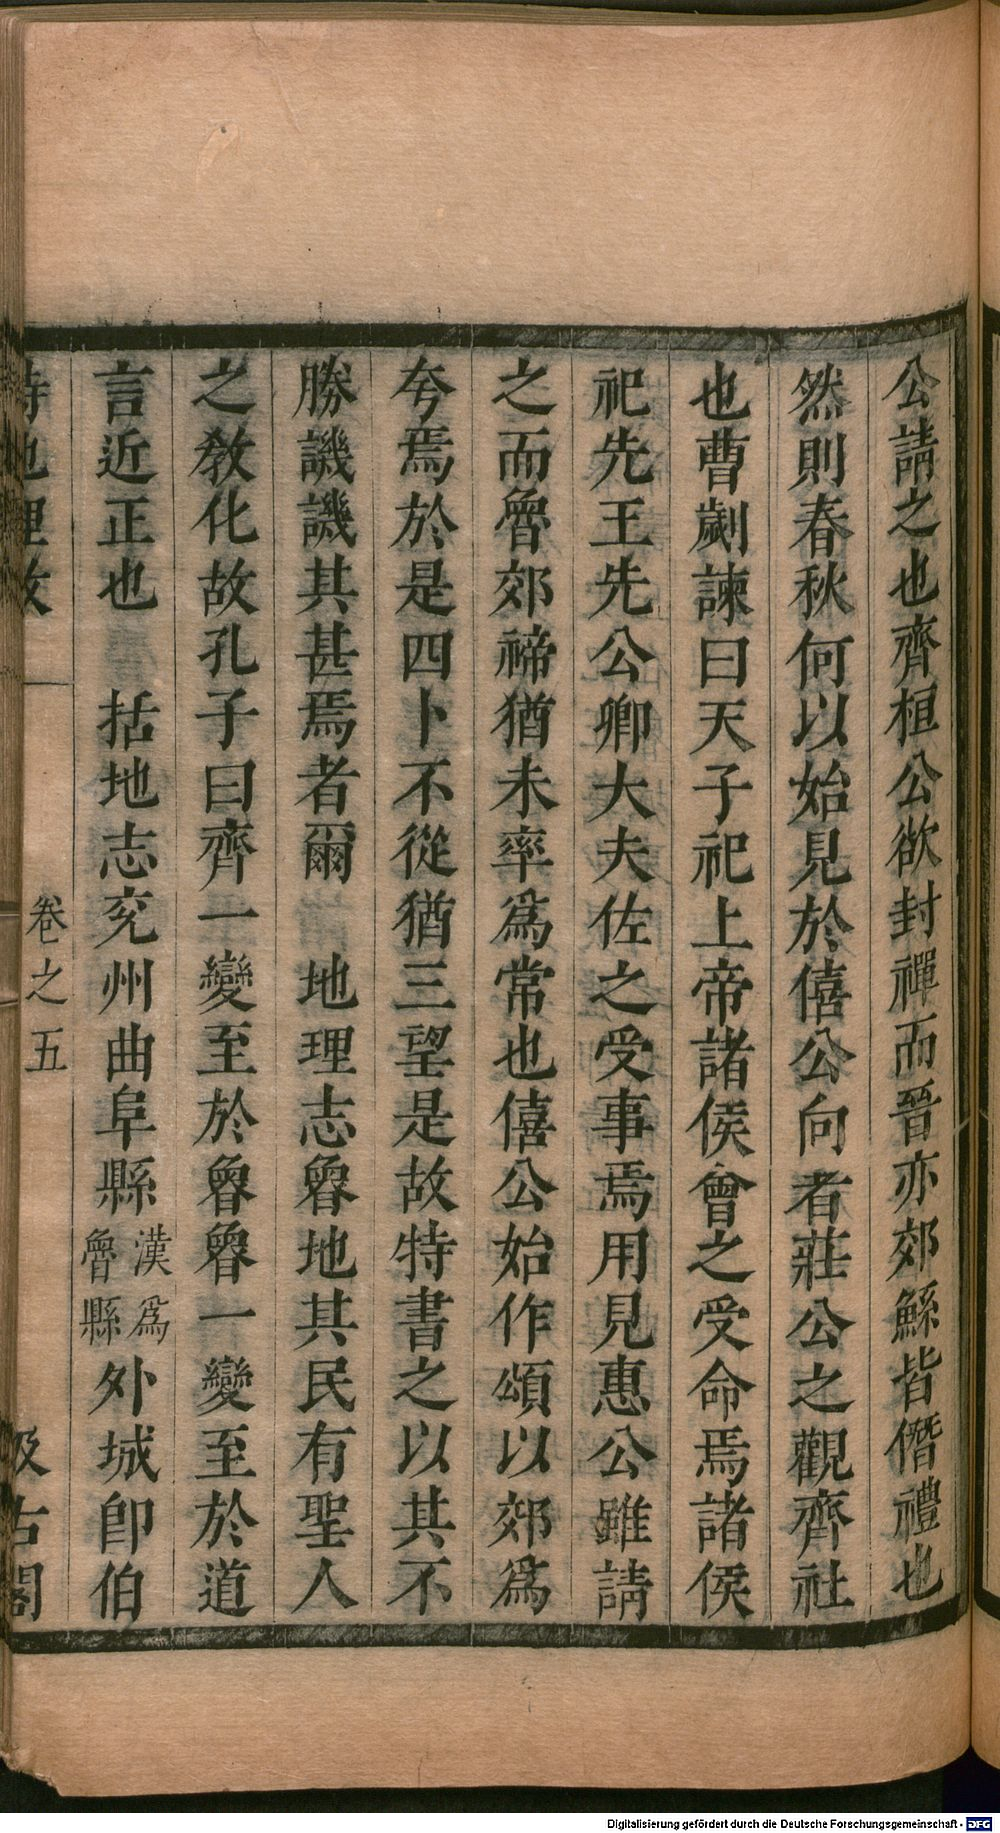 公請之也齊桓公欲封禪而晉亦郊鯀皆僭禮也
然則春秋何以始見於僖公向者莊公之觀齊社
也曹劌諫曰天子祀上帝諸侯會之受命焉諸侯
祀先王先公卿大夫佐之受事焉用見惠公雖請
之而魯郊禘猶未率爲常也僖公始作頌以郊爲
夸焉於是四卜不從猶三望是故特書之以其不
勝譏譏其甚焉者爾　地理志魯地其民有聖人
之敎化故孔子曰齊一變至於魯魯一變至於道
言近正也　括地志兖州曲阜縣漢爲魯縣外城卽伯
詩地理攷　卷之五　汲古閣
Digitalisierung gefördert durch die Deutsche Forschungsgemeinschaft - DFG